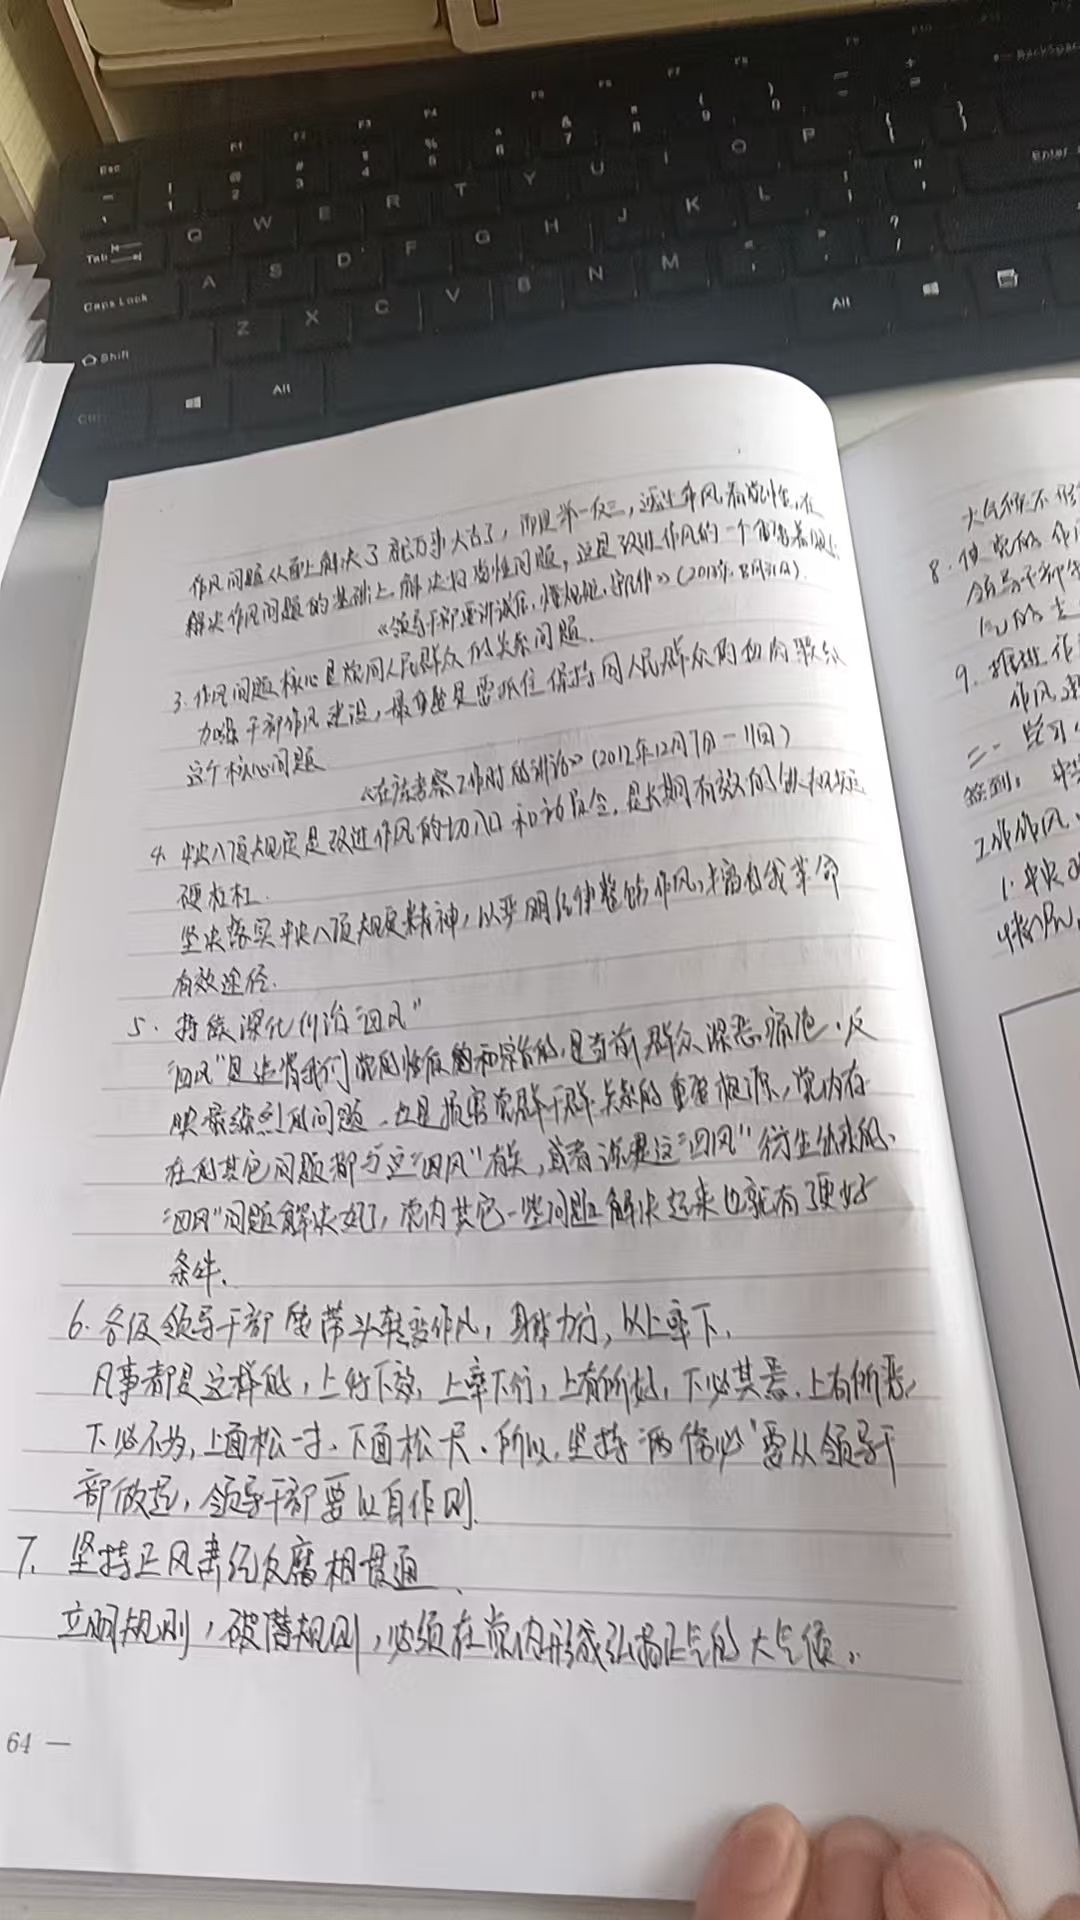 Esc F1 F2 F3 F4 F5 F6 F7 F8 F9 F10
1 2 3 4 5 6 7 8 9 0 Backspace
Tab Q W E R T Y U I O P Enter
Caps Lock A S D F G H J K L
Shift Z X C V B N M
Alt Alt
作风问题从面上解决了就万事大吉了，而是举一反三，透过作风看党性，在
解决作风问题的基础上解决好党性问题，这是改进作风的一个重要着眼点
《领导干部要讲诚信、懂规矩、
3. 作风问题核心是党同人民群众的关系问题.
加强干部作风建设，最重要是要抓住保持同人民群众的血肉联系
这个核心问题
考察工作时的讲话》(2012年12月7日－11日)
4. 中央八项规定是改进作风的切入口和动员令，是长期有效的铁规定
硬杠杠.
坚决落实中央八项规定精神，以严明纪律整饬作风，丰富自我革命
有效途径.
5. 持续深化纠治“四风”
“四风”是违背我们党的性质和宗旨的，是当前群众深恶痛绝、反
映最强烈的问题，也是损害党群干群关系的重要根源，党内存
在的其它问题都与这“四风”有关，或者说是这“四风”衍生出来的、
“四风”问题解决好了，党内其它一些问题解决起来也就有了更好
条件.
6. 各级领导干部要带头转变作风，身体力行，以上率下.
凡事都是这样的，上行下效，上率下行，上有所好，下必甚焉，上有所恶，
下必不为，上面松一寸，下面松一尺. 所以，坚持两个务必要从领导干
部做起，领导干部要以身作则.
7. 坚持正风肃纪反腐相贯通
立明规则，破潜规则，必须在党内形成弘扬正气的大气候.
64 —
8. 使党的作
领导干部
9. 推进作
作风
二. 学习
签到：
1. 中央